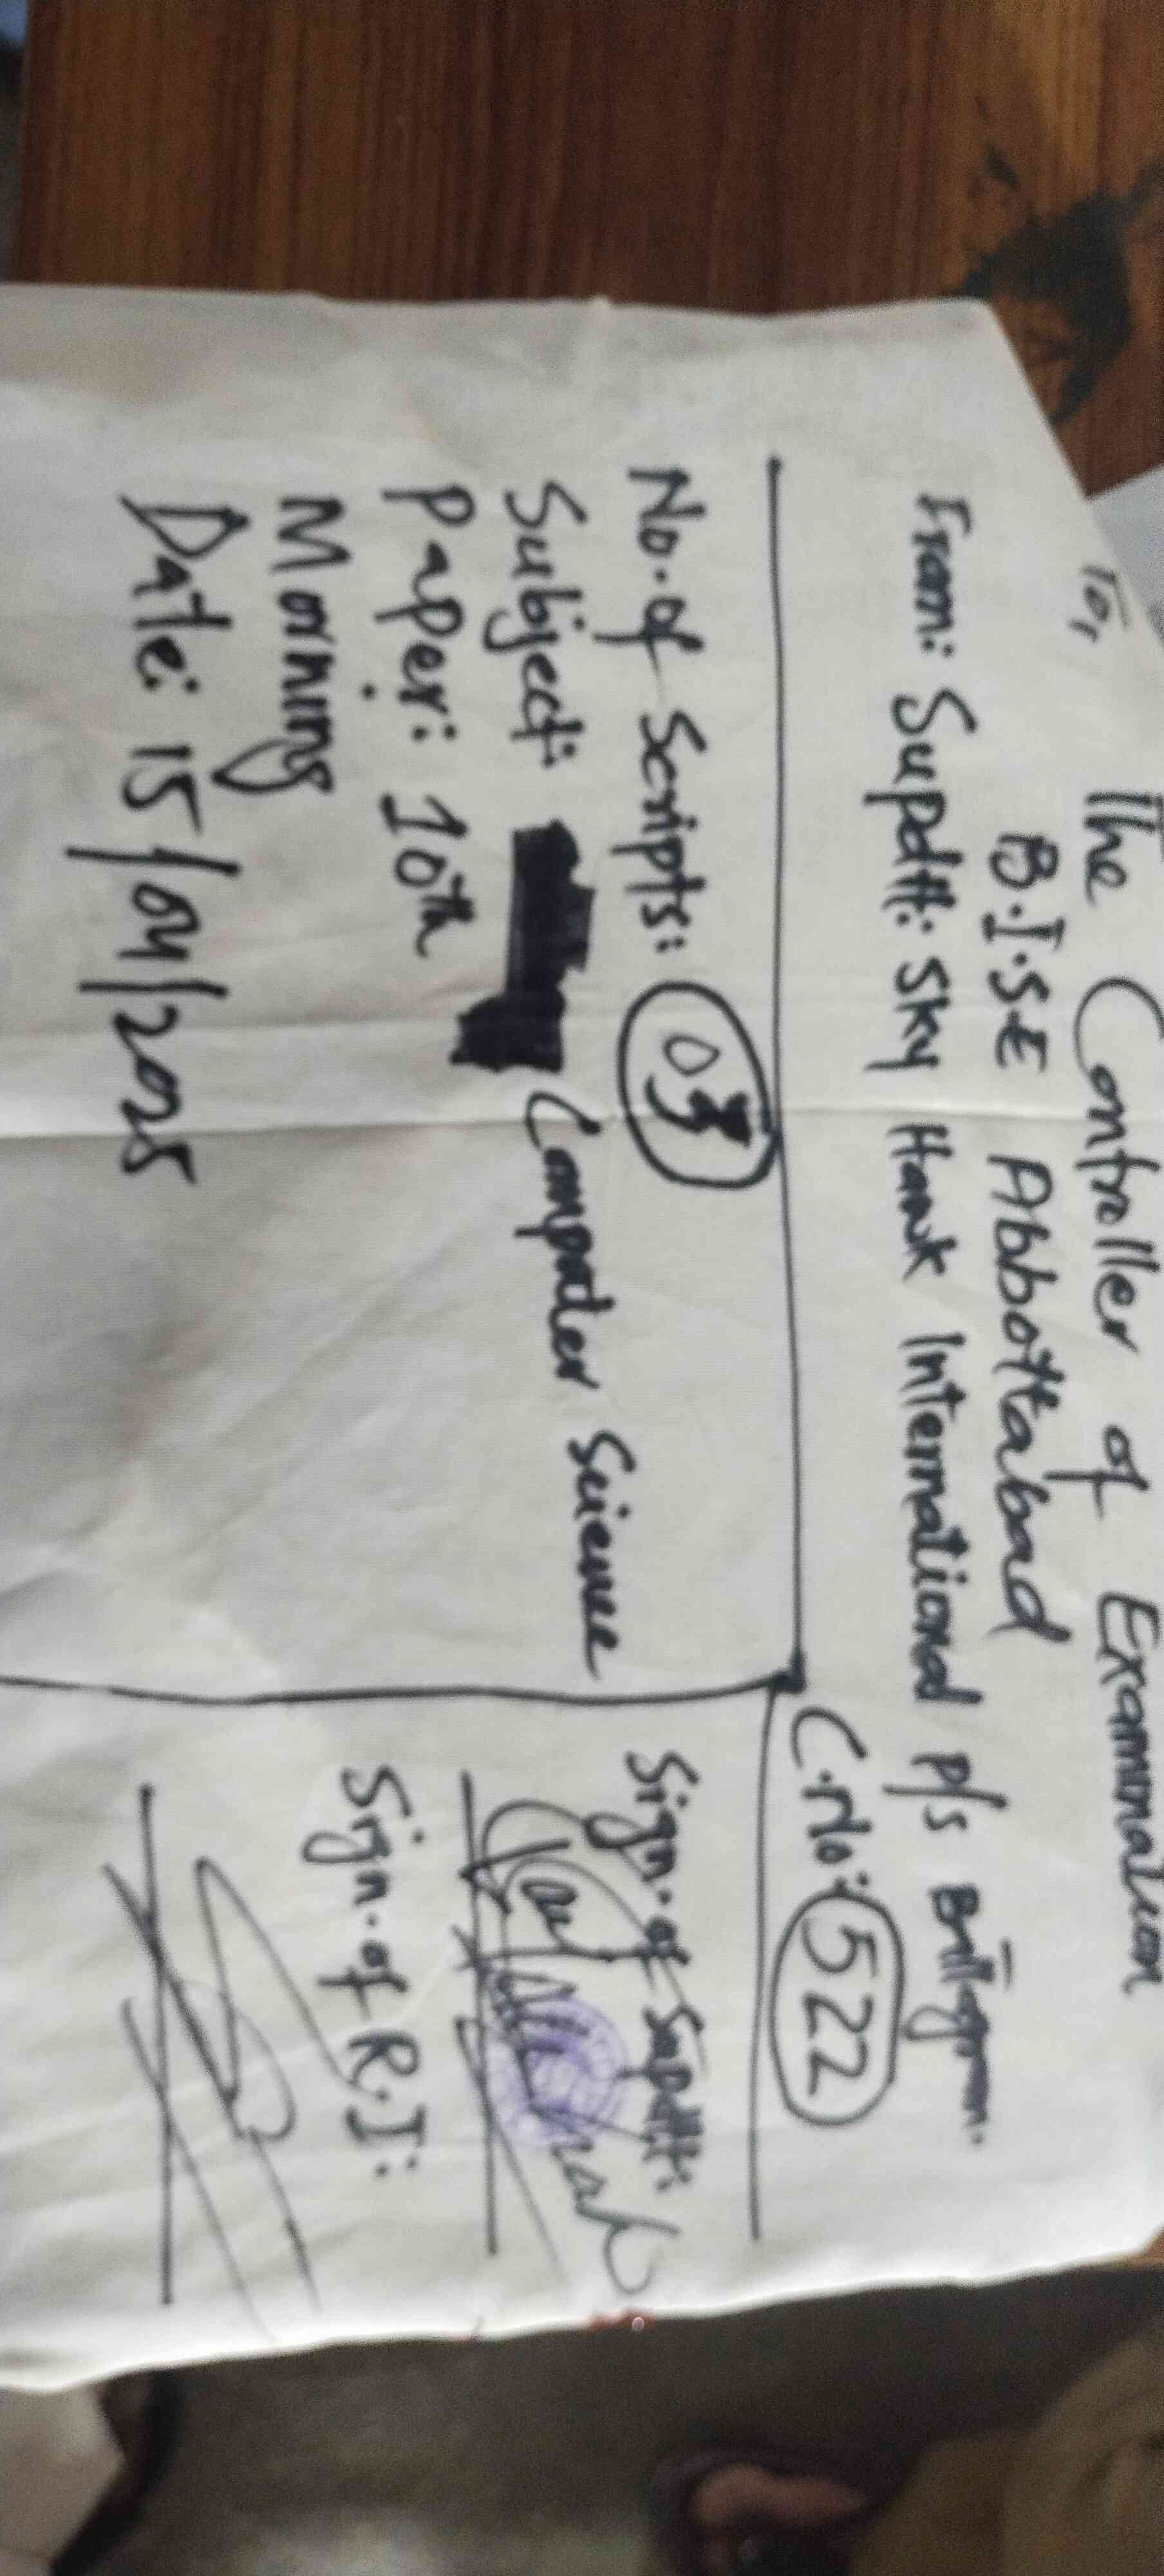 To,
The Controller of Examination
B.I.S.E Abbottabad
From: Supdtt: Sky Hawk International P/S Battagram.
C.No: 522
No. of Scripts: 03
Subject: Computer Science
Paper: 10th
Morning
Date: 15/04/2025
Sign. of Supdtt:
Sign. of R.I: